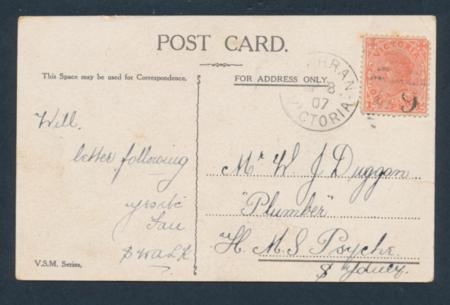 POST CARD.
This Space may be used for Correspondence.
FOR ADDRESS ONLY.
VICTORIA
8
07
VICTORIA
Will.
letter following
Mr W J Duggan
"Plumber"
H.M.S Psyche.
Sydney.
V.S.M. Series.